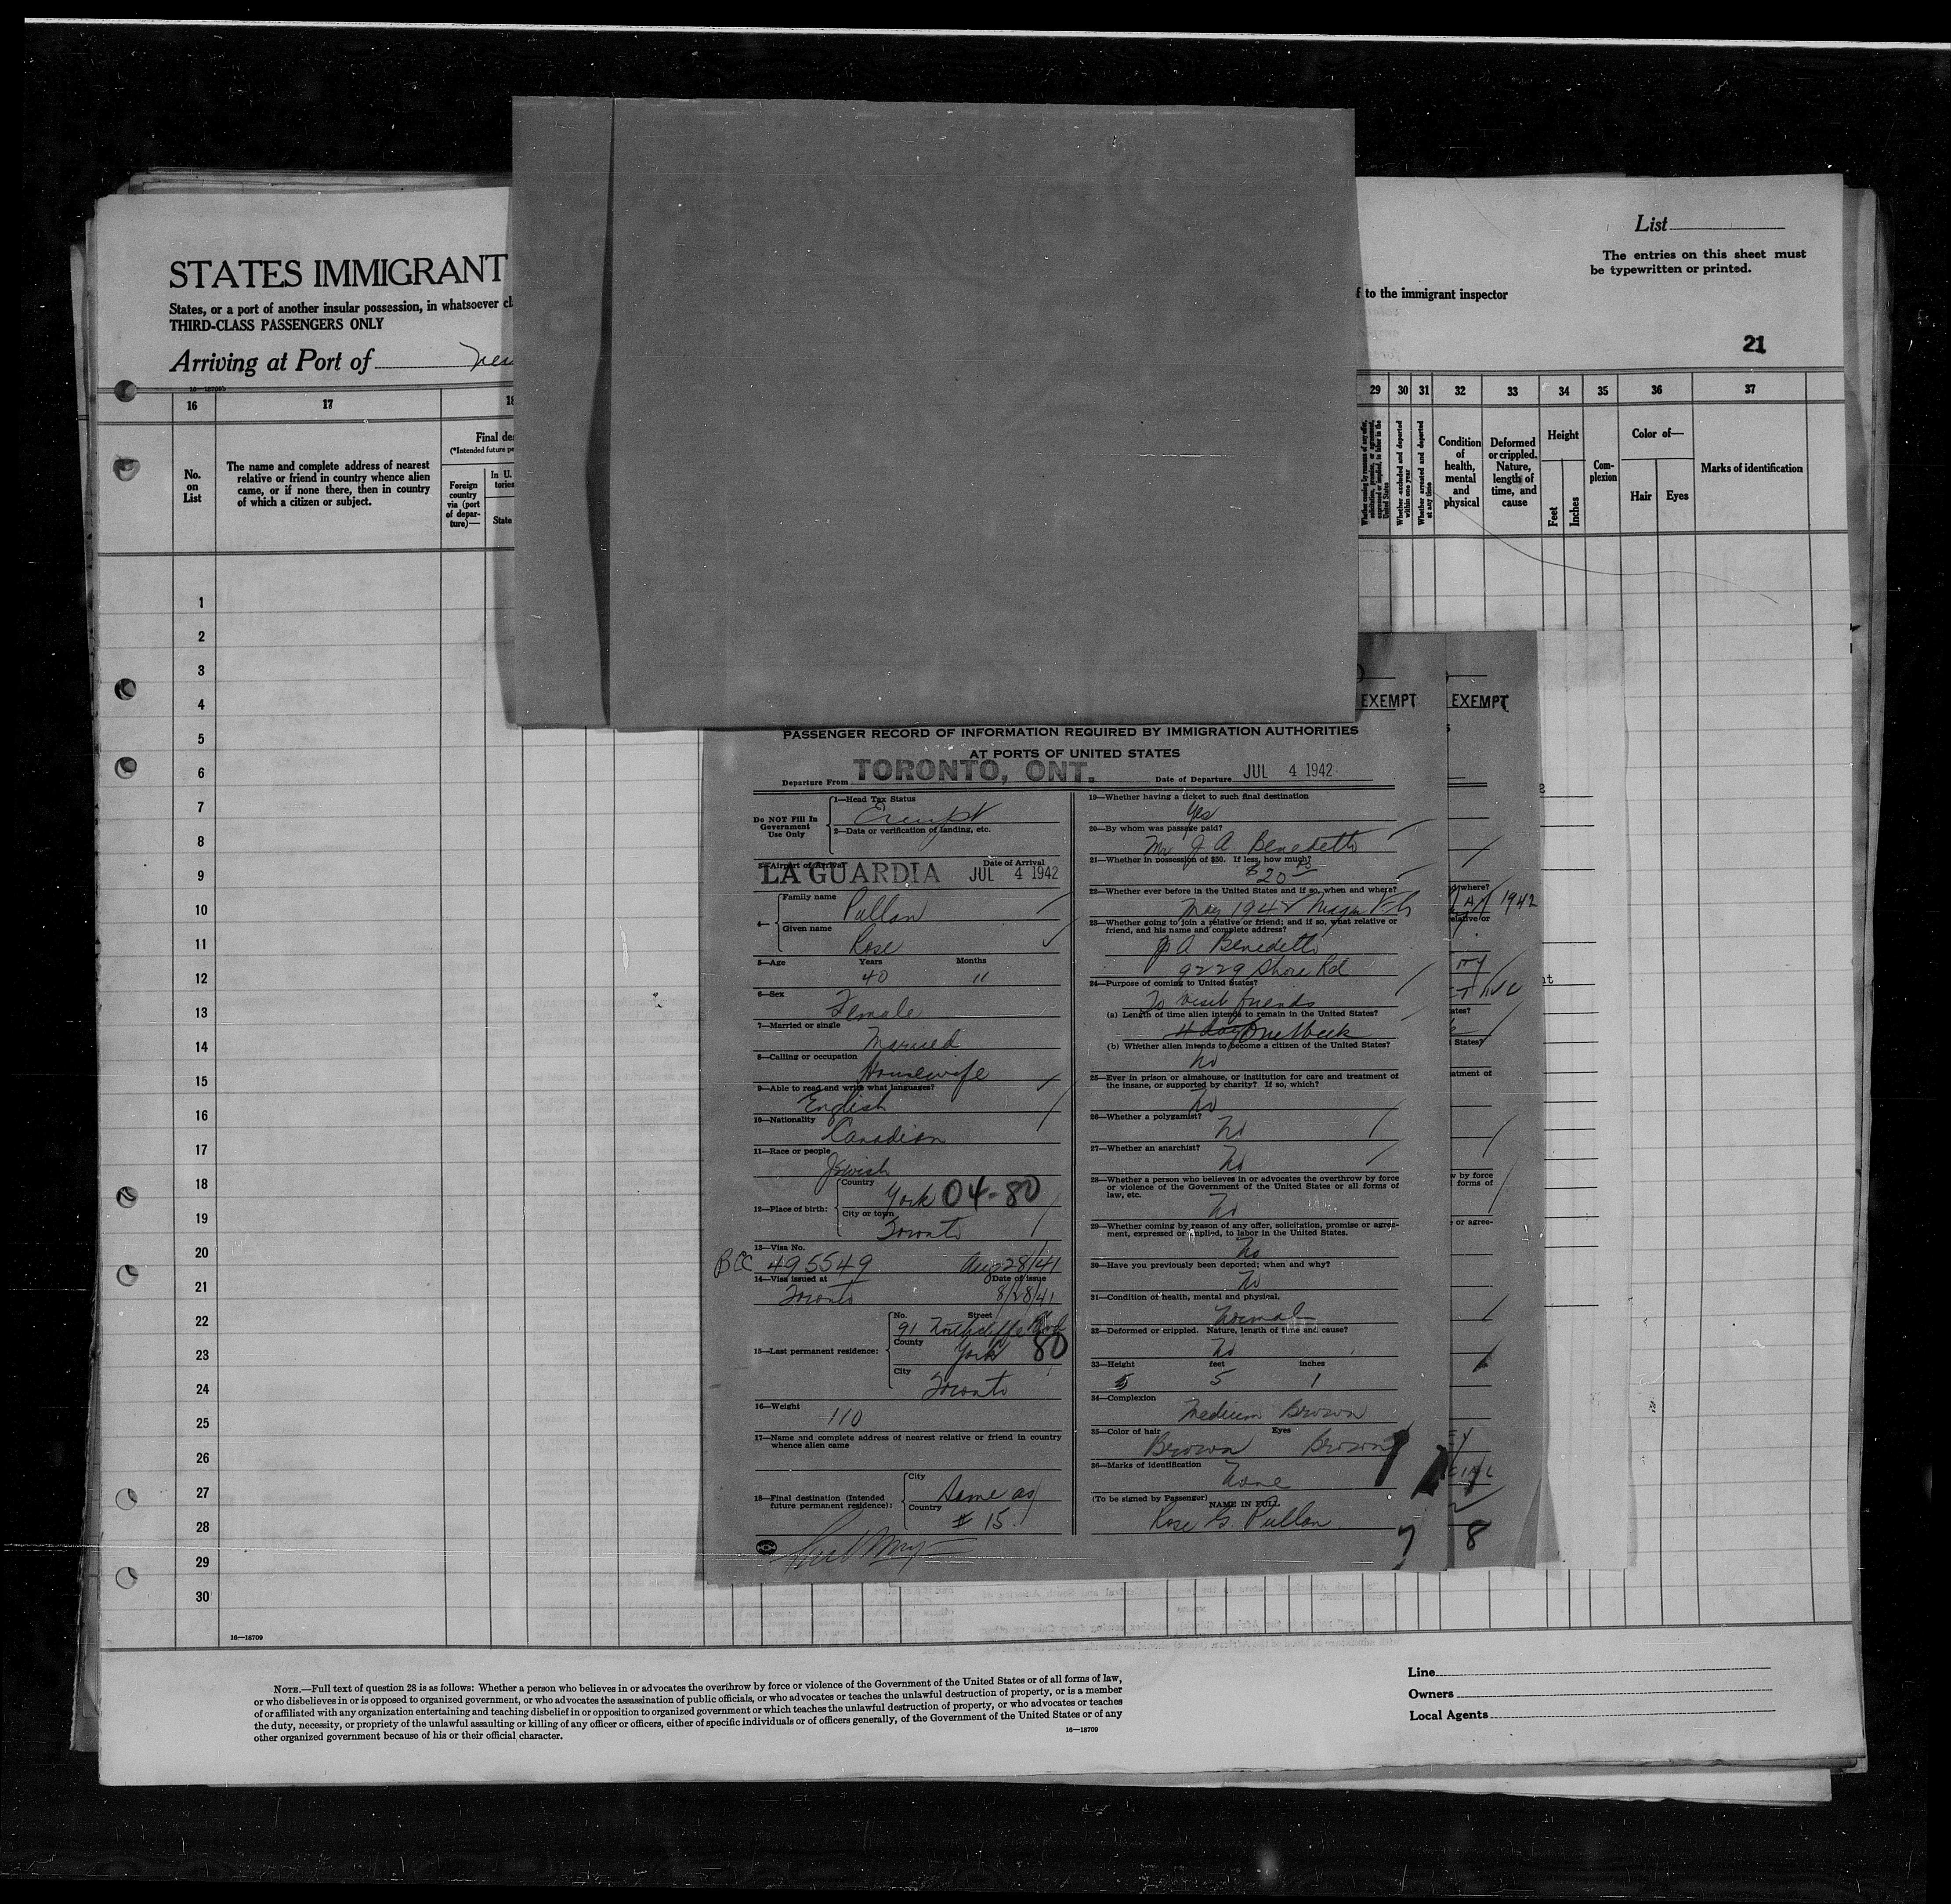 STATES IMMIGRANT
States, or a port of another insular possession, in whatsoever cl
THIRD-CLASS PASSENGERS ONLY
Arriving at Port of
f to the immigrant inspector
List
The entries on this sheet must
be typewritten or printed.
21
16 17 18 29 30 31 32 33 34 35 36 37
No.
on
List
The name and complete address of nearest
relative or friend in country whence alien
came, or if none there, then in country
of which a citizen or subject.
Final des
(*Intended future pe
Foreign
country
via (port
of depar-
ture)—
In U.
State
Whether excluded and deported
within one year
Whether arrested and deported
at any time
Condition
of
health,
mental
and
physical
Deformed
or crippled.
Nature,
length of
time, and
cause
Height
Feet
Inches
Com-
plexion
Color of—
Hair
Eyes
Marks of identification
1
2
3
4
5
6
7
8
9
10
11
12
13
14
15
16
17
18
19
20
21
22
23
24
25
26
27
28
29
30
16—18709
EXEMPT
EXEMPT
PASSENGER RECORD OF INFORMATION REQUIRED BY IMMIGRATION AUTHORITIES
AT PORTS OF UNITED STATES
Departure From TORONTO, ONT. Date of Departure JUL 4 1942
Do NOT Fill In
Government
Use Only
1—Head Tax Status
Exempt
2—Data or verification of landing, etc.
3—Airport of Arrival Date of Arrival
LA GUARDIA JUL 4 1942
4— Family name
Pullan
Given name
Rose
5—Age Years Months
40 11
6—Sex
Female
7—Married or single
Married
8—Calling or occupation
Housewife
9—Able to read and write what languages?
English
10—Nationality
Canadian
11—Race or people
Jewish
12—Place of birth: Country
York 04-80
City or town
Toronto
13—Visa No.
BCC 495549 Aug 28/41
14—Visa issued at Date of issue
Toronto 8/28/41
15—Last permanent residence: No. Street
91 Northcliffe Blvd
County
York 80
City
Toronto
16—Weight
110
17—Name and complete address of nearest relative or friend in country
whence alien came
18—Final destination (Intended
future permanent residence):
City
Same as
Country
# 15
19—Whether having a ticket to such final destination
Yes
20—By whom was passage paid?
Mr J. A. Benedetto
21—Whether in possession of $50. If less, how much?
$20
22—Whether ever before in the United States and if so, when and where?
May 1942
23—Whether going to join a relative or friend; and if so, what relative or
friend, and his name and complete address?
J A Benedetto
9229 Shore Rd
24—Purpose of coming to United States?
To visit friends
(a) Length of time alien intends to remain in the United States?
4 days One Week
(b) Whether alien intends to become a citizen of the United States?
No
25—Ever in prison or almshouse, or institution for care and treatment of
the insane, or supported by charity? If so, which?
No
26—Whether a polygamist?
No
27—Whether an anarchist?
No
28—Whether a person who believes in or advocates the overthrow by force
or violence of the Government of the United States or all forms of
law, etc.
No
29—Whether coming by reason of any offer, solicitation, promise or agree-
ment, expressed or implied, to labor in the United States.
No
30—Have you previously been deported; when and why?
No
31—Condition of health, mental and physical.
Normal
32—Deformed or crippled. Nature, length of time and cause?
No
33—Height feet inches
5 1
34—Complexion
Medium Brown
35—Color of hair Eyes
Brown Brown
36—Marks of identification
None
(To be signed by Passenger) NAME IN FULL
Rose G. Pullan
7
8
where?
1942
elative or
ates?
States?
atment of
w by force
forms of
or agree-
NOTE.—Full text of question 28 is as follows: Whether a person who believes in or advocates the overthrow by force or violence of the Government of the United States or of all forms of law,
or who disbelieves in or is opposed to organized government, or who advocates the assassination of public officials, or who advocates or teaches the unlawful destruction of property, or is a member
of or affiliated with any organization entertaining and teaching disbelief in or opposition to organized government or which teaches the unlawful destruction of property, or who advocates or teaches
the duty, necessity, or propriety of the unlawful assaulting or killing of any officer or officers, either of specific individuals or of officers generally, of the Government of the United States or of any
other organized government because of his or their official character.
16—18709
Line
Owners
Local Agents